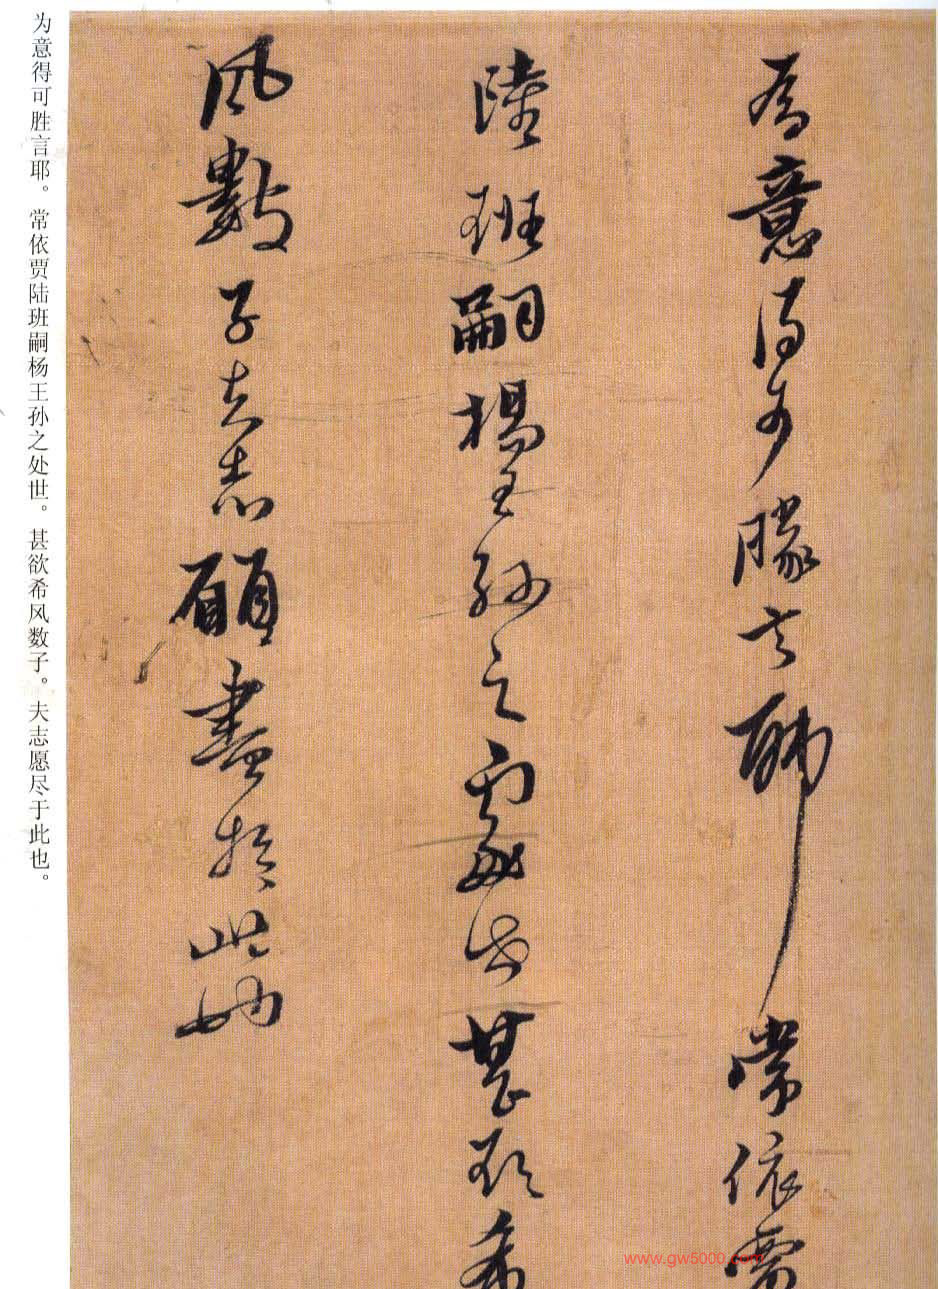 為意得可勝言耶常依賈
陸班嗣楊王孫之處世甚欲希
風數子夫志願盡於此也
为意得可胜言耶。常依贾陆班嗣杨王孙之处世。甚欲希风数子。夫志愿尽于此也。
www.gw5000.com